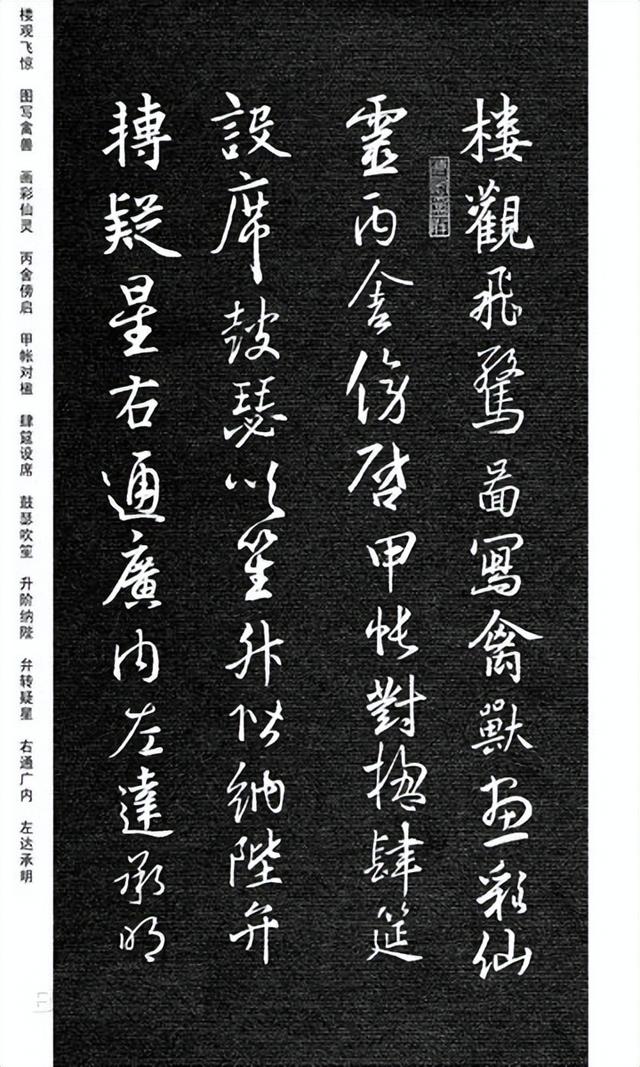 樓觀飛驚啚寫禽獸畫彩仙
靈丙舍傍啓甲帳對楹肆筵
設席鼓瑟吹笙升階納陛弁
轉疑星右通廣内左達承明
楼观飞惊 图写禽兽 画彩仙灵 丙舍傍启 甲帐对楹 肆筵设席 鼓瑟吹笙 升阶纳陛 弁转疑星 右通广内 左达承明